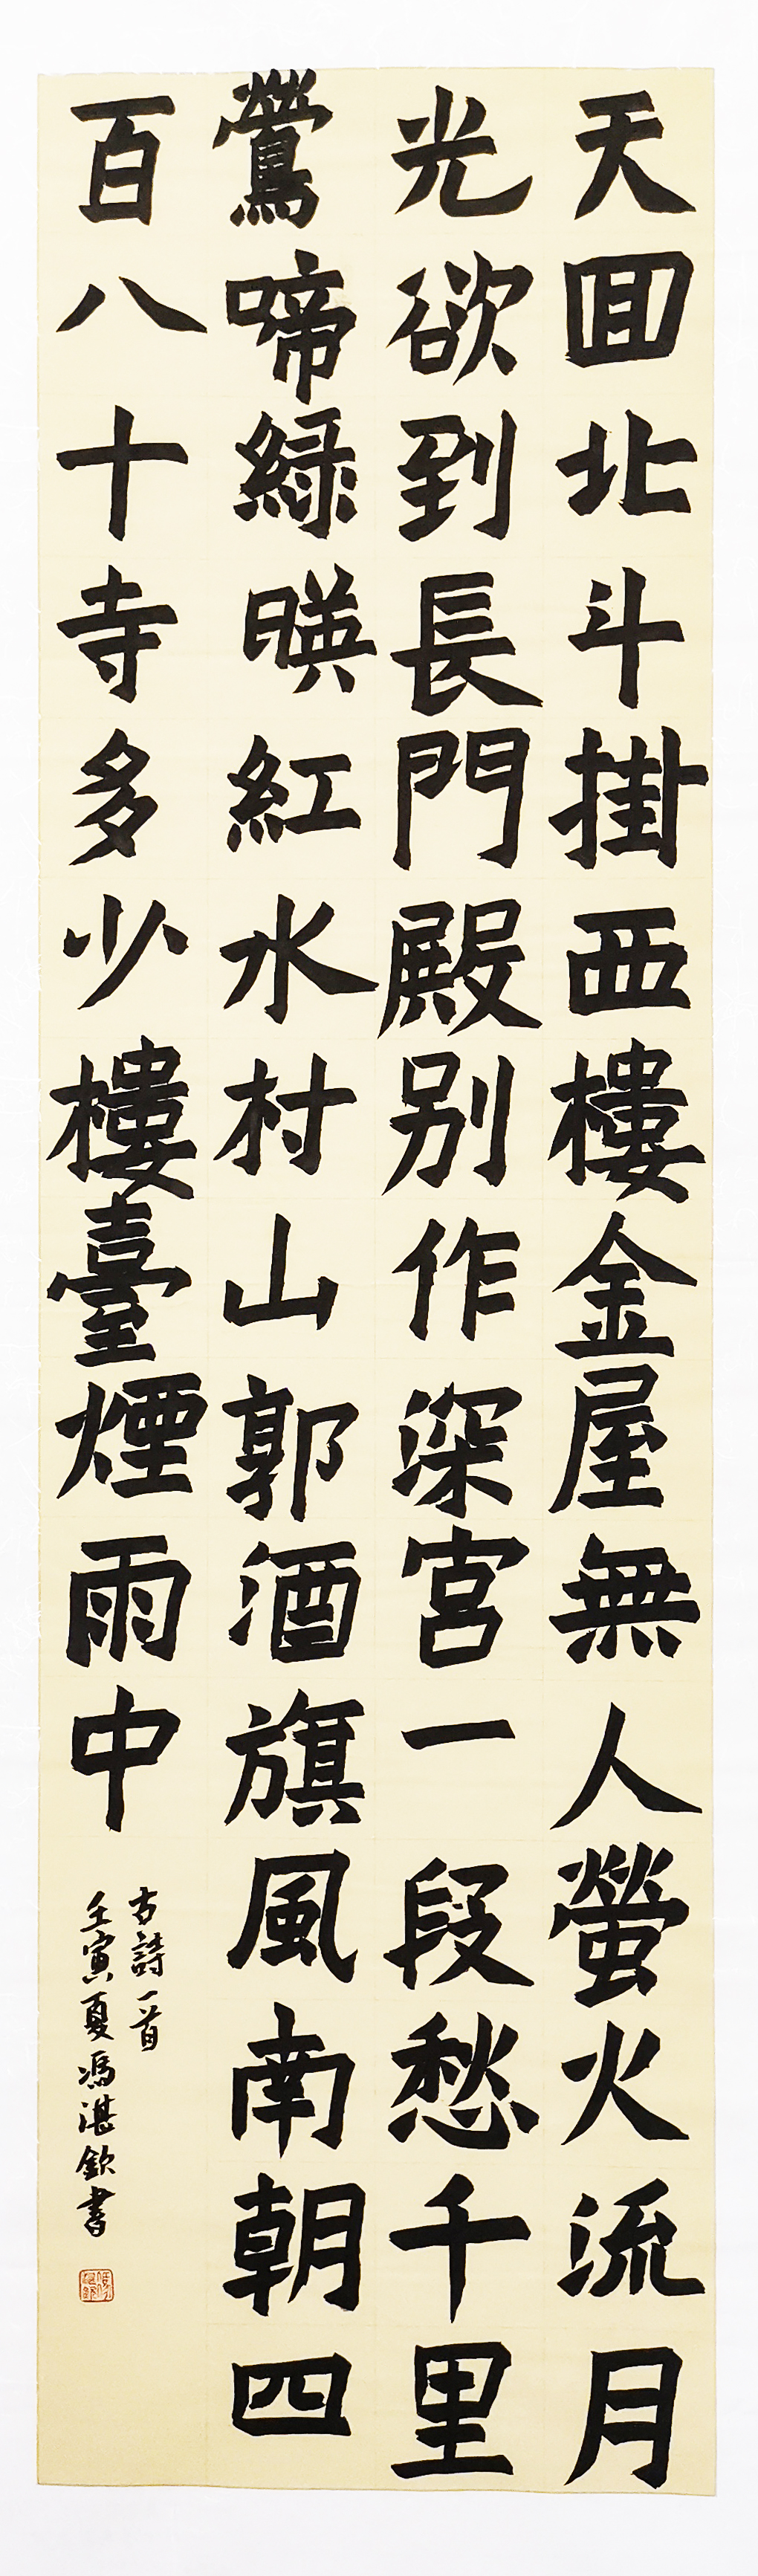 天回北斗掛西樓金屋無人螢火流月
光欲到長門殿别作深宮一段愁千里
鶯啼綠暎紅水村山郭酒旗風南朝四
百八十寺多少樓臺煙雨中
古詩一首
壬寅夏馮湛欽書